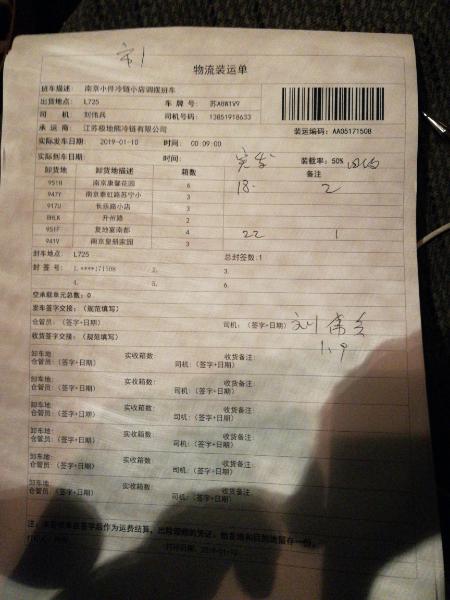 刘
物流装运单
班车描述: 南京小件冷链小店调拨班车
出货地点: L725 车牌号: 苏A8W1V9
司机: 刘伟兵 司机号码: 13851918633
承运商: 江苏极地熊冷链有限公司 装运编码: AA05171508
实际发车日期: 2019-01-10 时间: 00:09:00
实际到车日期: 时间: 实发 装载率: 50%
卸货地 卸货地描述 箱数 备注
951H 南京康馨花园 6 18. 2
947Y 南京泰虹路苏宁小 3
917U 长乐路小店 3
8HLK 升州路 2
951F 复地宴南都 4 22 1
941V 南京皇册家园 3
封车地点: L725 总封签数:1
封签号: 1.****171508 2. 3.
4. 5. 6.
空承载单元总数: 0
发车签字交接: (规范填写)
仓管员: (签字+日期) 司机: (签字+日期) 刘伟兵
收货签字交接: (规范填写) 1.9
卸车地: 实收箱数: 收货备注:
仓管员: (签字+日期) 司机: (签字+日期)
卸车地: 实收箱数: 收货备注:
仓管员: (签字+日期) 司机: (签字+日期)
卸车地: 实收箱数: 收货备注:
仓管员: (签字+日期) 司机: (签字+日期)
卸车地: 实收箱数: 收货备注:
仓管员: (签字+日期) 司机: (签字+日期)
卸车地: 实收箱数: 收货备注:
仓管员: (签字+日期) 司机: (签字+日期)
卸车地: 实收箱数: 收货备注:
仓管员: (签字+日期) 司机: (签字+日期)
注: 签字后作为运费结算, 出险理赔的凭证, 始发地和目的地留存一份。
打印日期: 2019-01-10